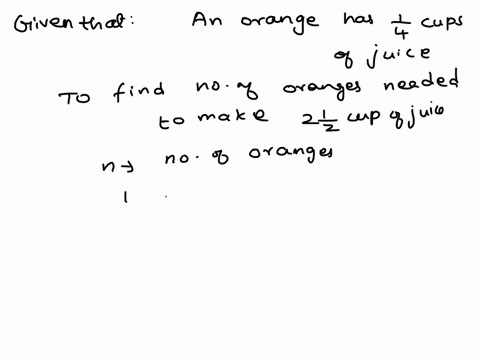 Given that: An orange has 1/4 cups
of juice
To find no. of oranges needed
to make 2 1/2 cup of juice
n → no. of oranges
1